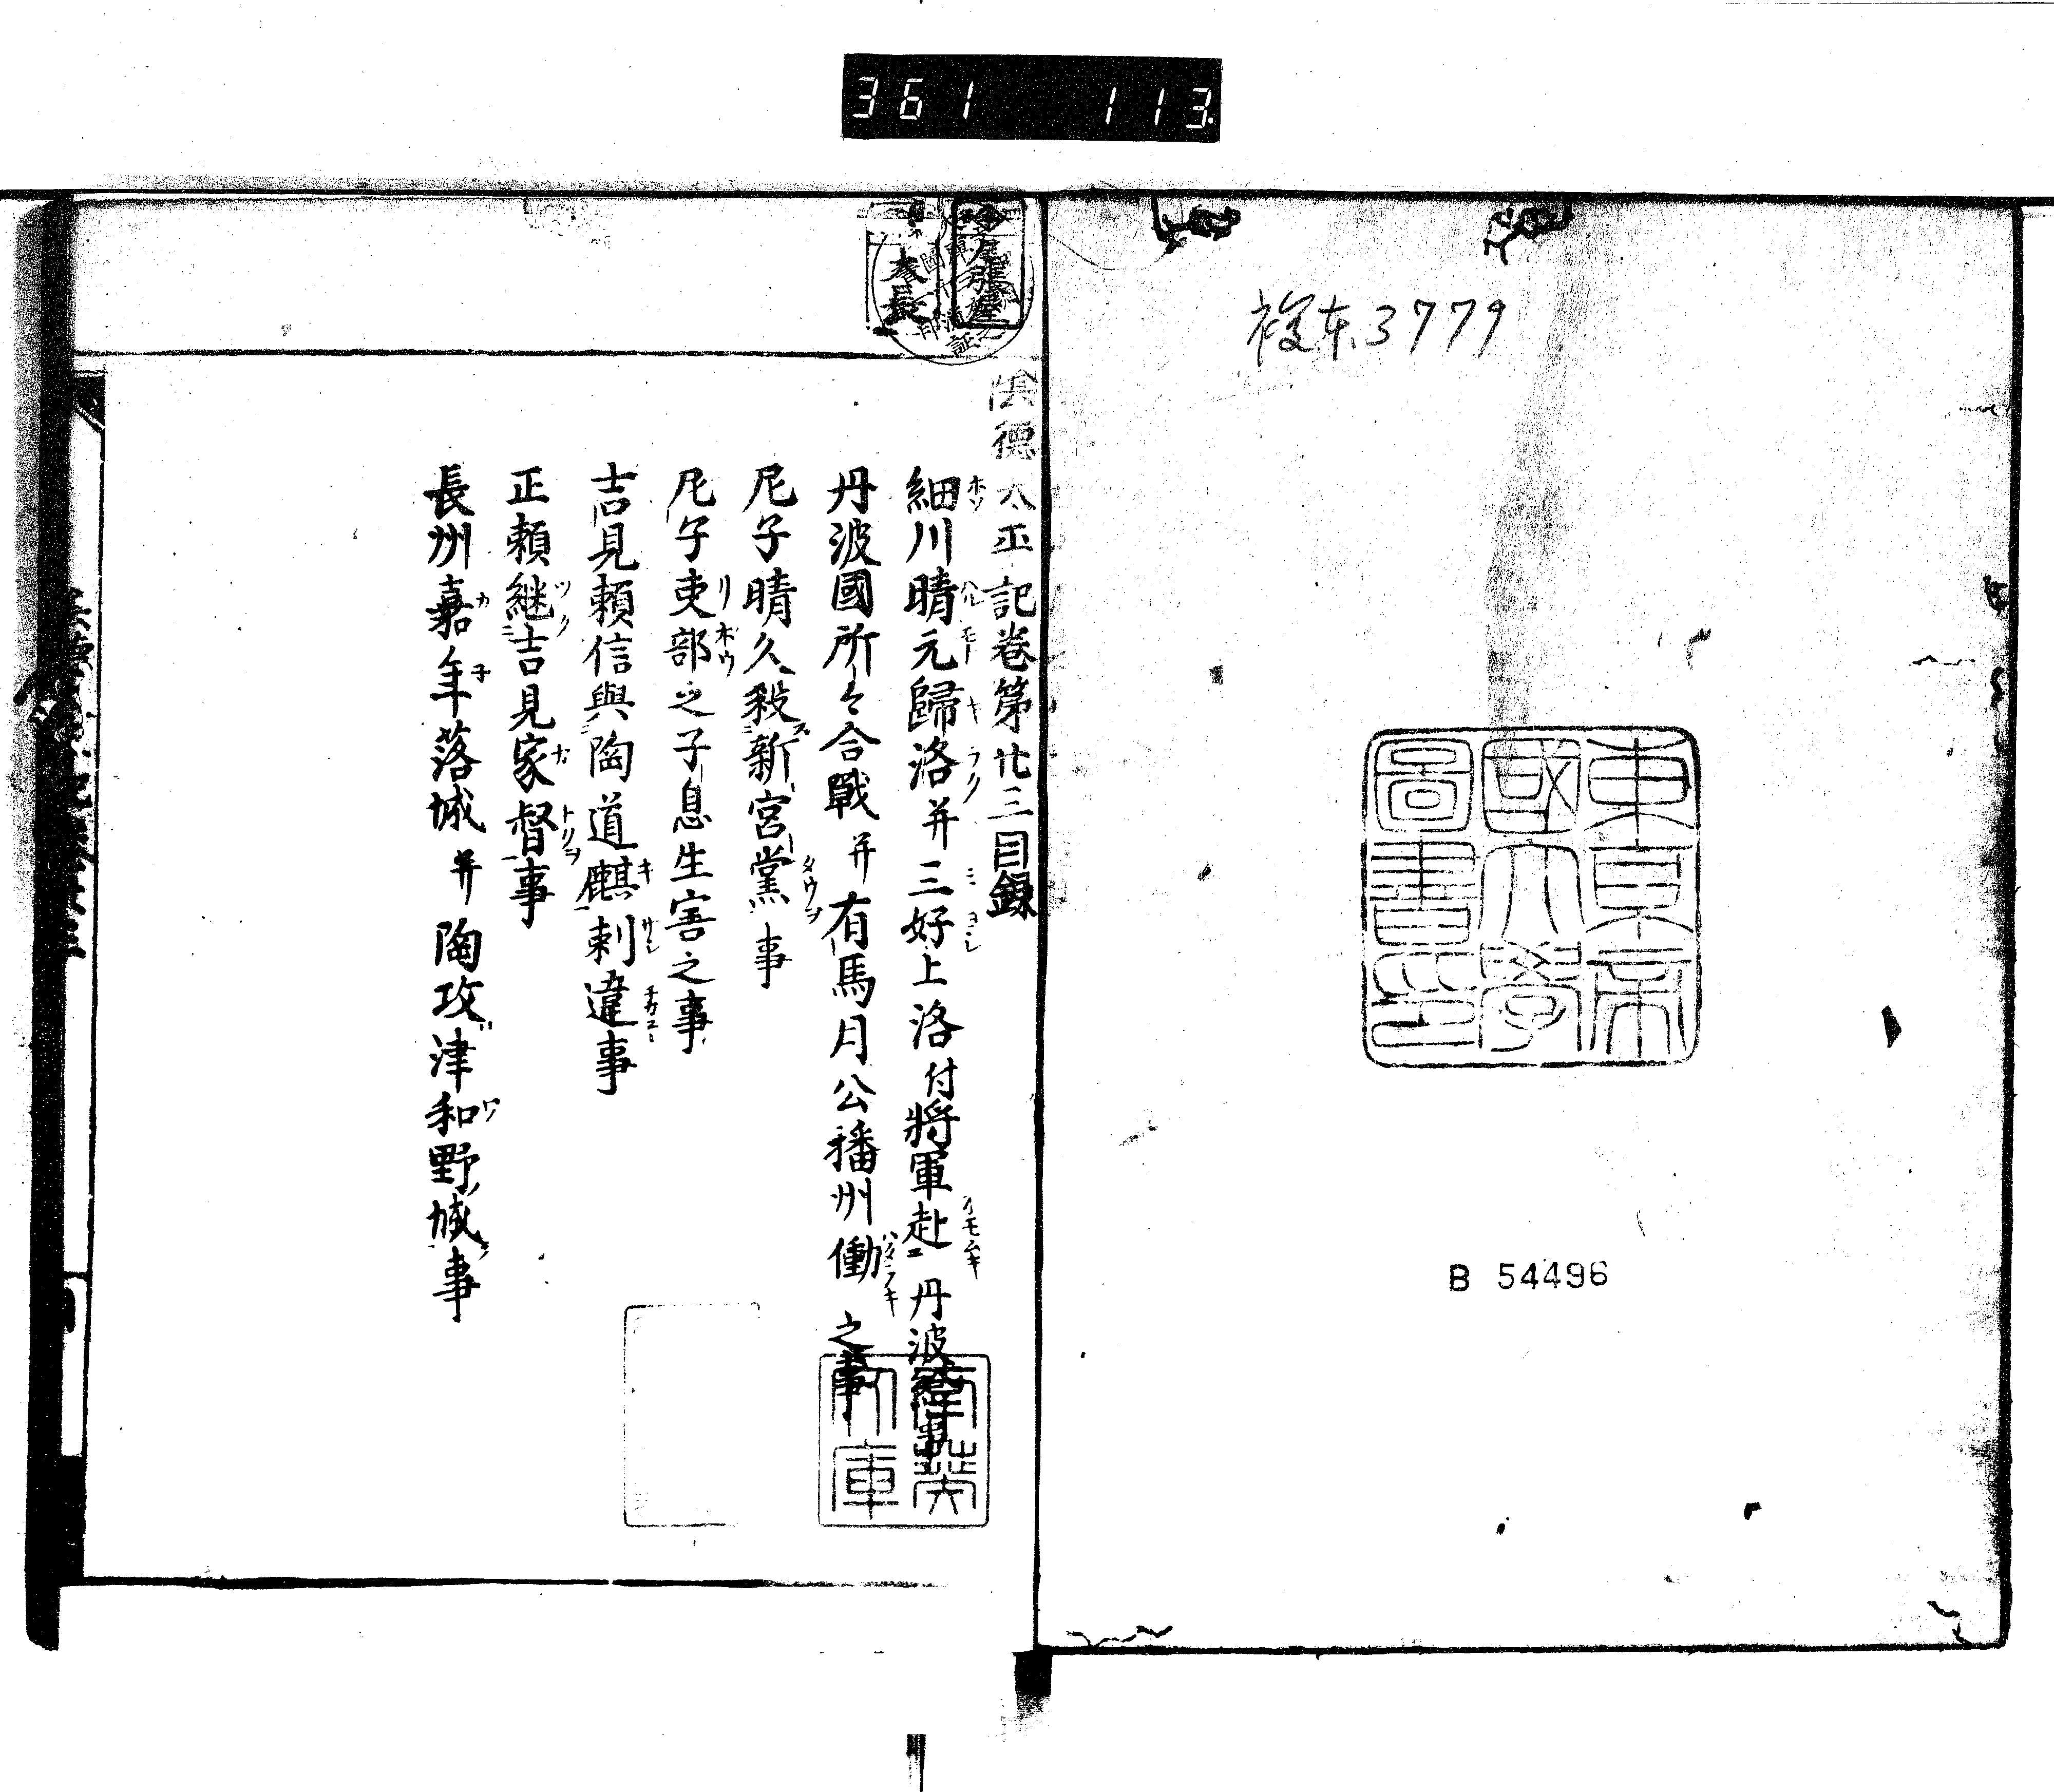 361 113
複本3779
東京帝
國大學
圖書印
B 54496
陰德太平記卷第廿三目録
細川晴元歸洛并三好上洛付將軍赴丹波事
丹波國所々合戰并有馬月公播州働之事
尼子晴久殺新宮黨事
尼子吏部之子息生害之事
吉見頼信與陶道麒刺違事
正頼継吉見家督事
長州嘉年落城并陶攻津和野城事
文庫
大長